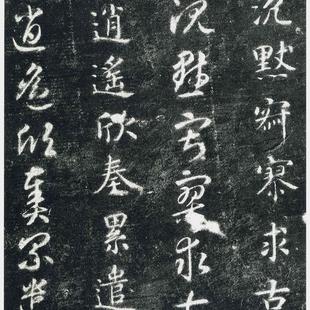 沉默寂寥求古
沉默寂寥求古
逍遙欣奏累遣
逍遙欣奏累遣